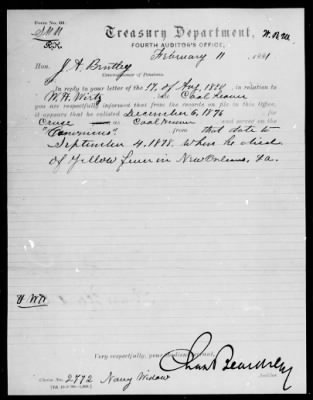 Form No. 98.
Treasury Department,
FOURTH AUDITOR'S OFFICE,
February 11, 1881
Hon. J. A. Bentley
Commissioner of Pensions.
In reply to your letter of the 17. of Aug. 1880, in relation to
W. H. Wirtz Coal Heaver
you are respectfully informed that from the records on file in this Office,
it appears that he enlisted December 6, 1876 for
Cruise as Coal Heaver and served on the
"Canonicus" from that date to
September 4, 1878. When he died
of Yellow fever in New Orleans, La.
Very respectfully, your obedient servant,
Chas Beardsley
Auditor.
Claim No. 2772 Navy Widow